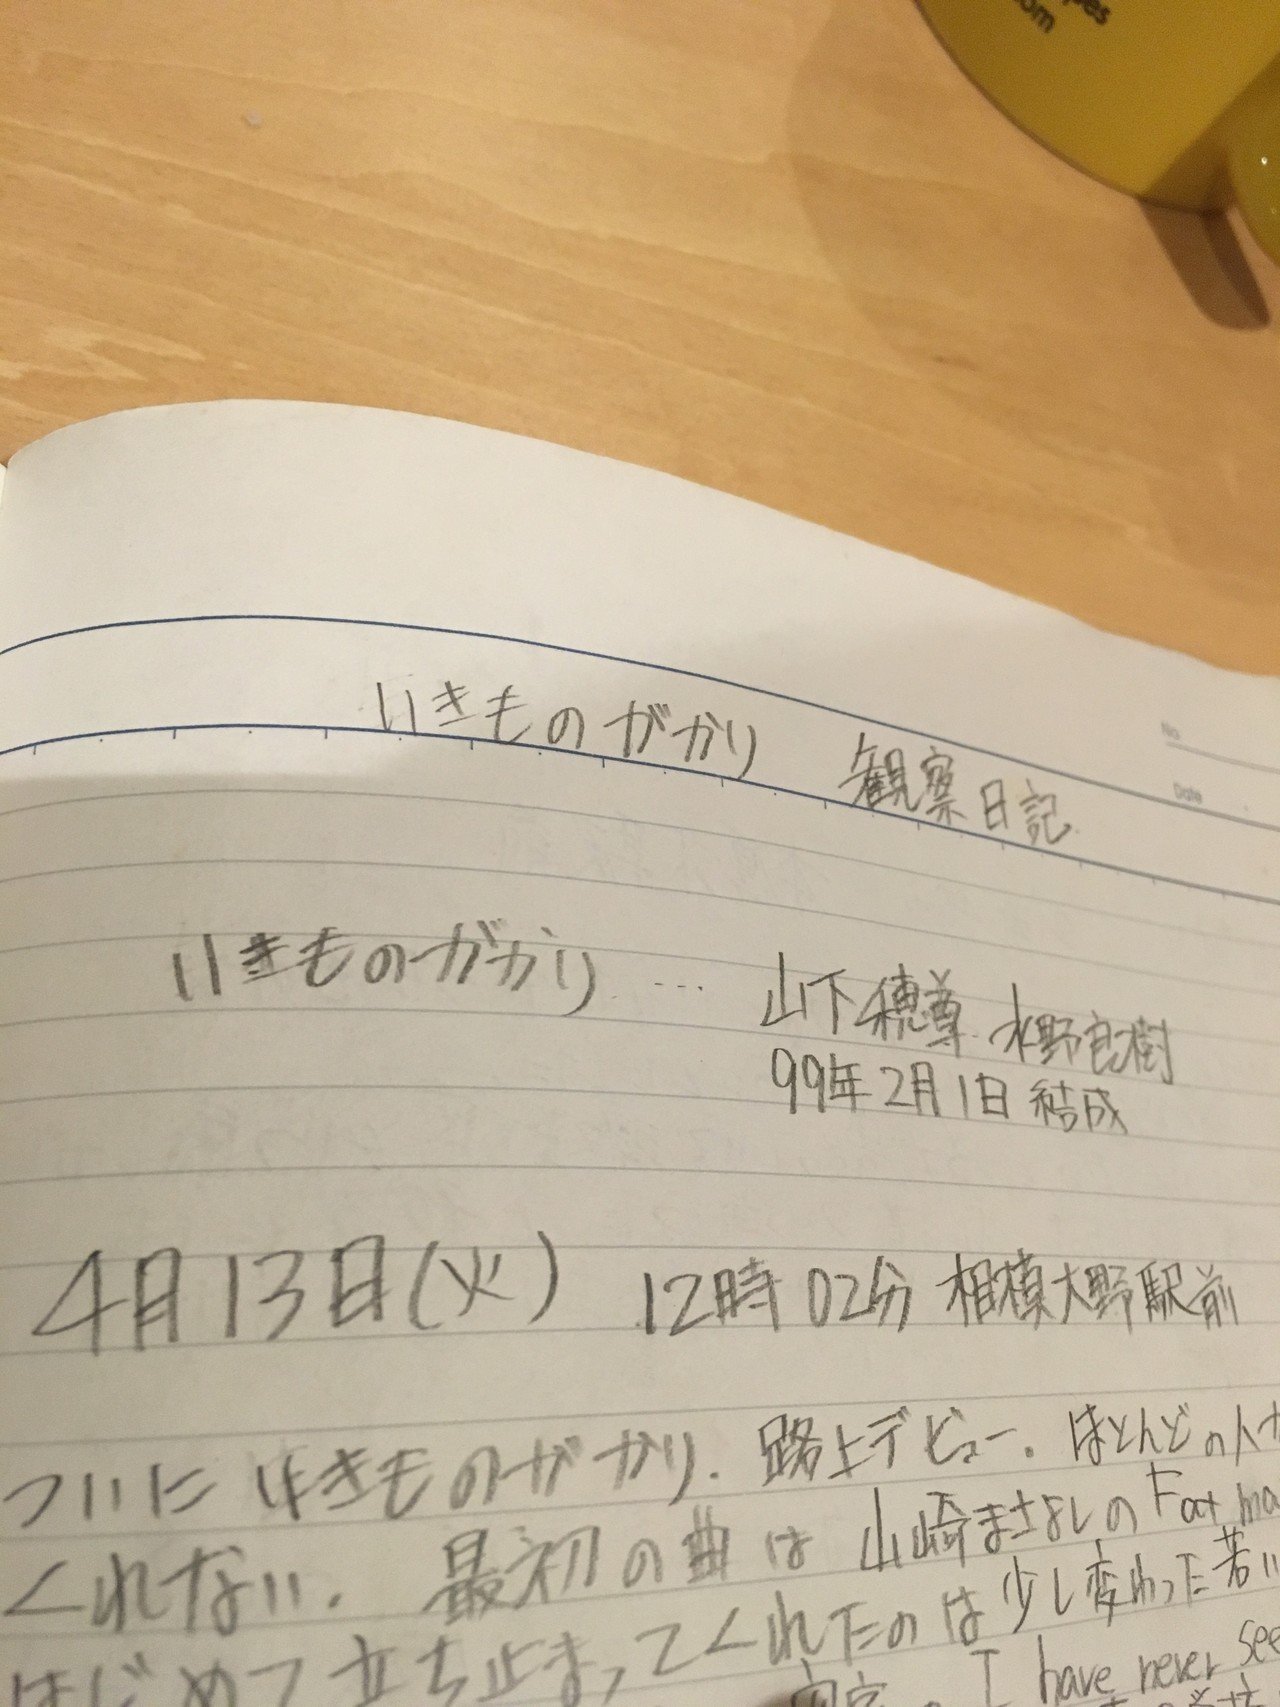 om
いきものがかり 観察日記
No
Date
いきものがかり … 山下穂尊 水野良樹
99年2月1日 結成
4月13日(火) 12時02分 相模大野駅前
ついに いきものがかり. 路上デビュー. ほとんどの人が
くれない. 最初の曲は 山崎まさよしの Fat ma
はじめて立ち止まってくれたのは少し変わった若い
I have never see